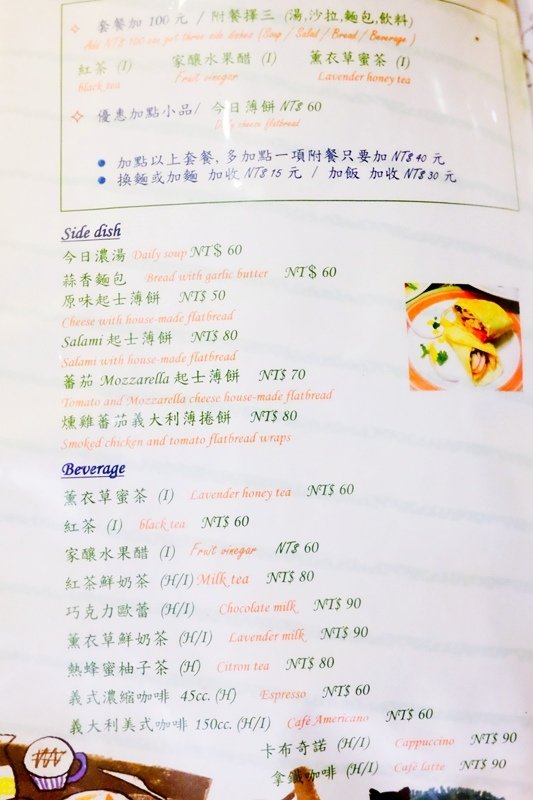 套餐加 100 元 / 附餐擇三 (湯,沙拉,麵包,飲料)
Add NT$ 100 can get three side dishes (Soup / Salad / Bread / Beverage)
紅茶 (I) 家釀水果醋 (I) 薰衣草蜜茶 (I)
black tea Fruit vinegar Lavender honey tea
優惠加點小品/ 今日薄餅 NT$ 60
Daily cheese flatbread
加點以上套餐, 多加點一項附餐只要加 NT$ 40 元
換麵或加麵 加收 NT$ 15 元 / 加飯 加收 NT$ 30 元
Side dish
今日濃湯 Daily soup NT$ 60
蒜香麵包 Bread with garlic butter NT$ 60
原味起士薄餅 NT$ 50
Cheese with house-made flatbread
Salami 起士薄餅 NT$ 80
Salami with house-made flatbread
蕃茄 Mozzarella 起士薄餅 NT$ 70
Tomato and Mozzarella cheese house-made flatbread
燻雞蕃茄義大利薄捲餅 NT$ 80
Smoked chicken and tomato flatbread wraps
Beverage
薰衣草蜜茶 (I) Lavender honey tea NT$ 60
紅茶 (I) black tea NT$ 60
家釀水果醋 (I) Fruit vinegar NT$ 60
紅茶鮮奶茶 (H/I) Milk tea NT$ 80
巧克力歐蕾 (H/I) Chocolate milk NT$ 90
薰衣草鮮奶茶 (H/I) Lavender milk NT$ 90
熱蜂蜜柚子茶 (H) Citron tea NT$ 80
義式濃縮咖啡 45cc. (H) Espresso NT$ 60
義大利美式咖啡 150cc. (H/I) Café Americano NT$ 60
卡布奇諾 (H/I) Cappuccino NT$ 90
拿鐵咖啡 (H/I) Café latte NT$ 90